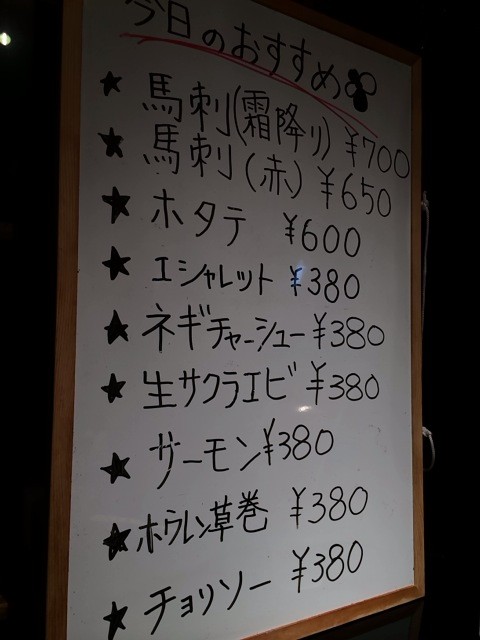 今日のおすすめ
★ 馬刺(霜降り) ¥700
★ 馬刺(赤) ¥650
★ ホタテ ¥600
★ エシャレット ¥380
★ ネギチャーシュー ¥380
★ 生サクラエビ ¥380
★ サーモン ¥380
★ ホウレン草巻 ¥380
★ チョリソー ¥380